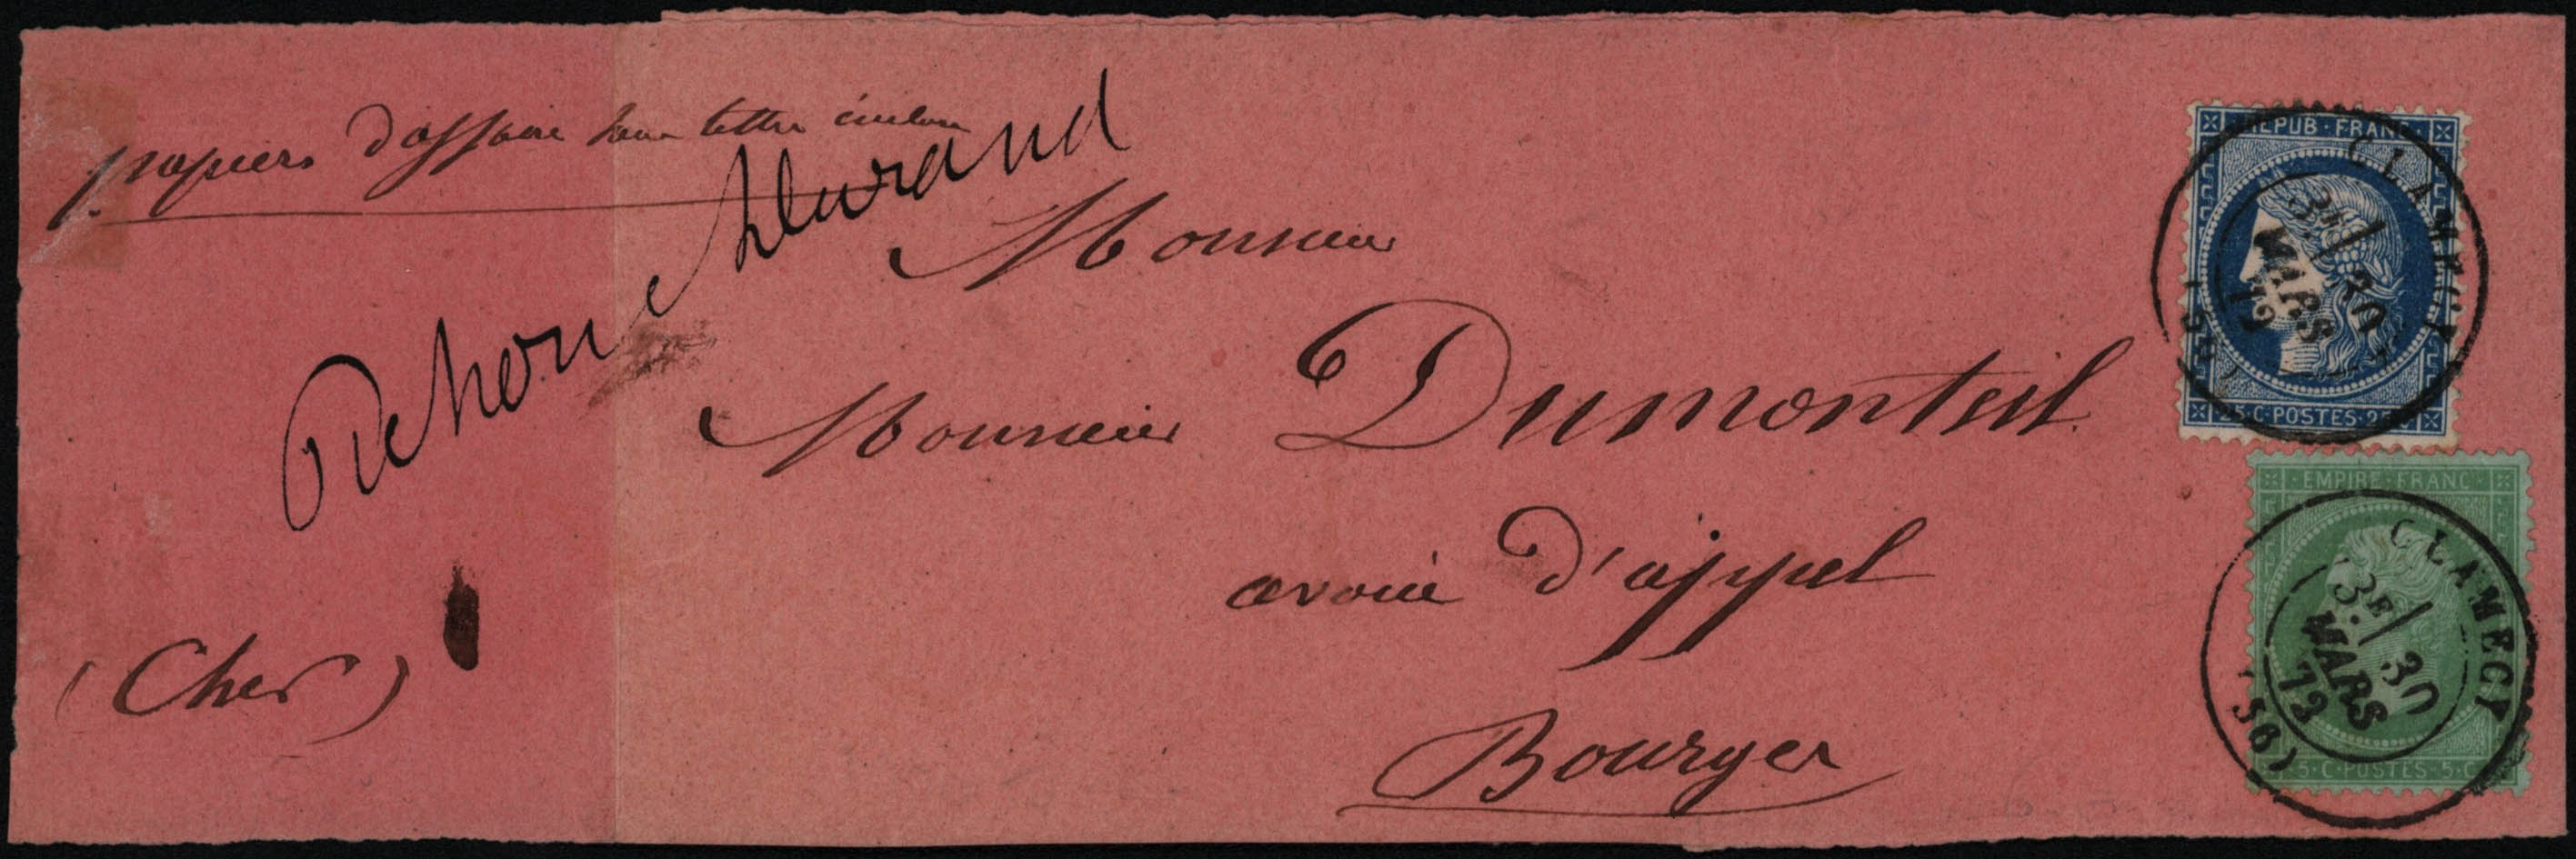 papiers d'affaire sans lettre
Pichon Durand
Monsieur
Monsieur Dumonteil
avoué d'appel
Bourges
(Cher)
REPUB·FRANC
25·C·POSTES·25·C
CLAMECY
3E/30
MARS
72
EMPIRE·FRANC
5·C·POSTES·5·C
CLAMECY
3E/30
MARS
72
(56)